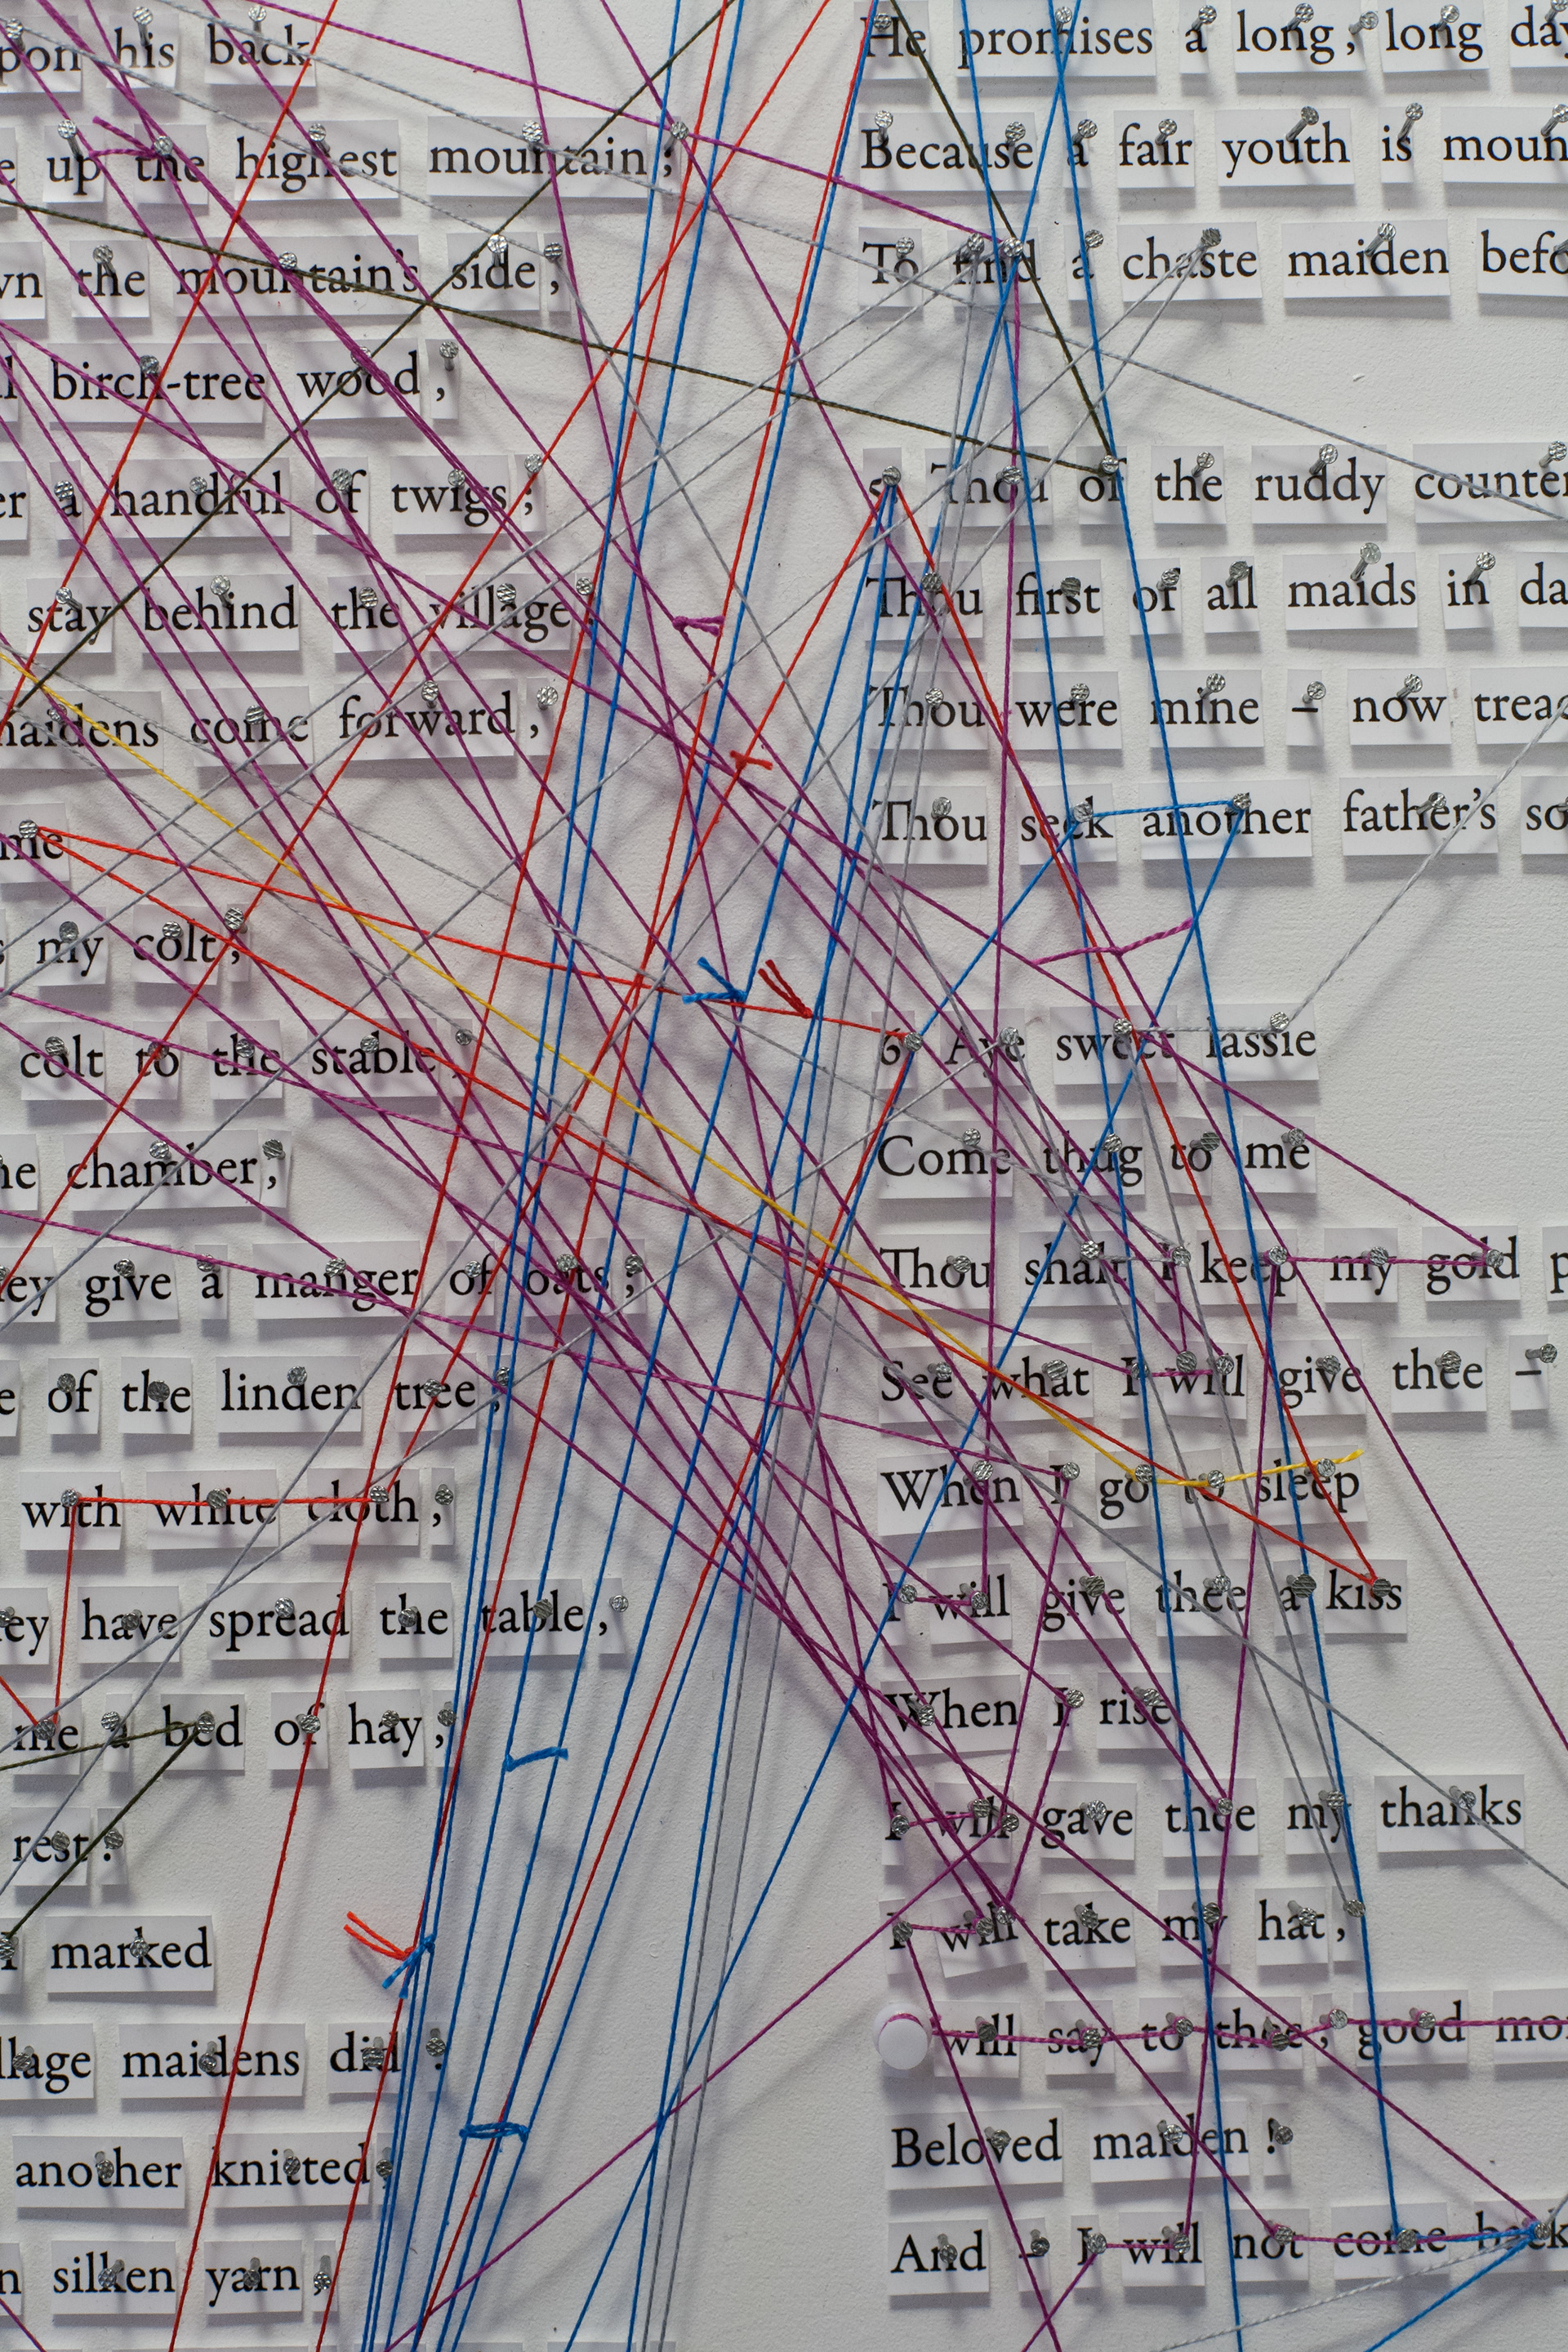 pon his back
up the highest mountain ;
the mountain's side ,
birch-tree wood ,
a handful of twigs ;
stay behind the village ;
maidens come forward ,
me
my colt ;
colt to the stable ,
chamber ,
give a manger of oats ;
of the linden tree ;
with white cloth ,
have spread the table ,
me a bed of hay ;
rest !
I marked
maidens did :
another knitted ;
silken yarn ,
He promises a long , long day
Because a fair youth is moun
To find a chaste maiden befo
5 Thou of the ruddy counten
Thou first of all maids in da
Thou were mine – now tread
Thou seek another father's so
6 Aye sweet lassie
Come thug to me
Thou shalt I keep my gold p
See what I will give thee –
When I go to sleep
I will give thee a kiss
When I rise
I will gave thee my thanks
I will take my hat ,
will say to thee , good mo
Beloved maiden !
And – I will not come back